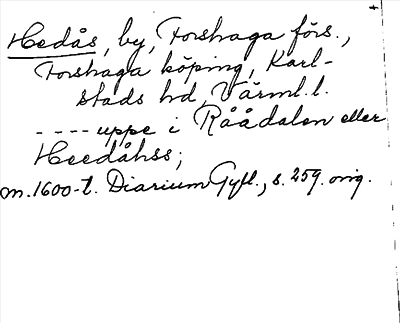 Hedås, by, Forshaga förs.,
Forshaga köping, Karl-
stads hd, Värml. l.
---- uppe i Råådalen eller
Heedåhss;
m. 1600-t. Diarium Gyll., s. 259. orig.